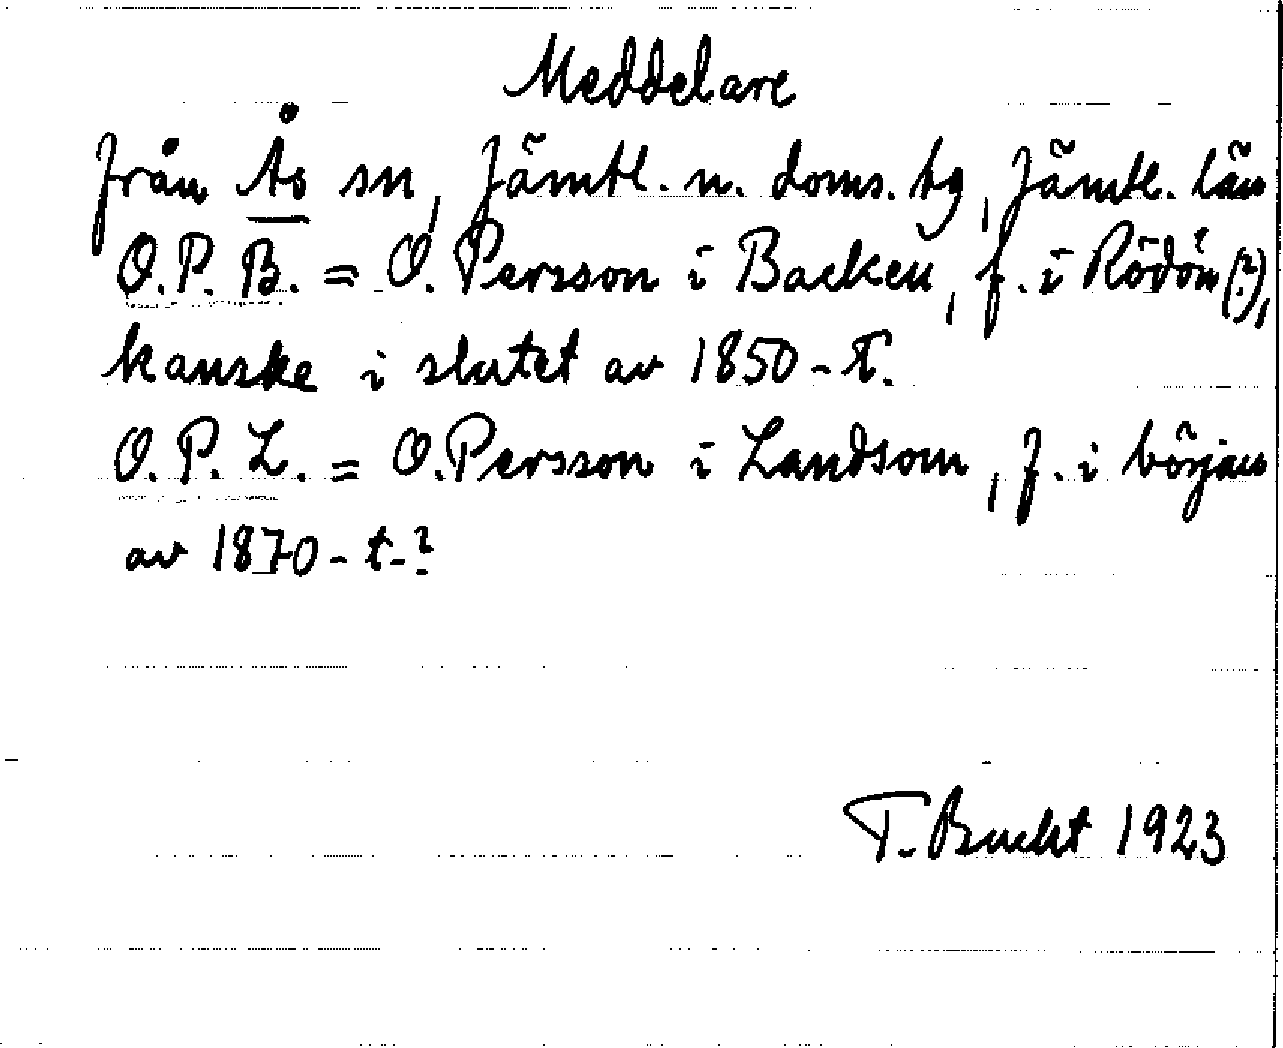 Meddelare
från Ås sn, Jämtl. n. doms. hg, Jämtl. län
O.P.B. = O. Persson i Backen, f. i Rödön (?),
kanske i slutet av 1850-t.
O.P.L. = O. Persson i Landsom, f. i början
av 1870-t.?
T. Bucht 1923